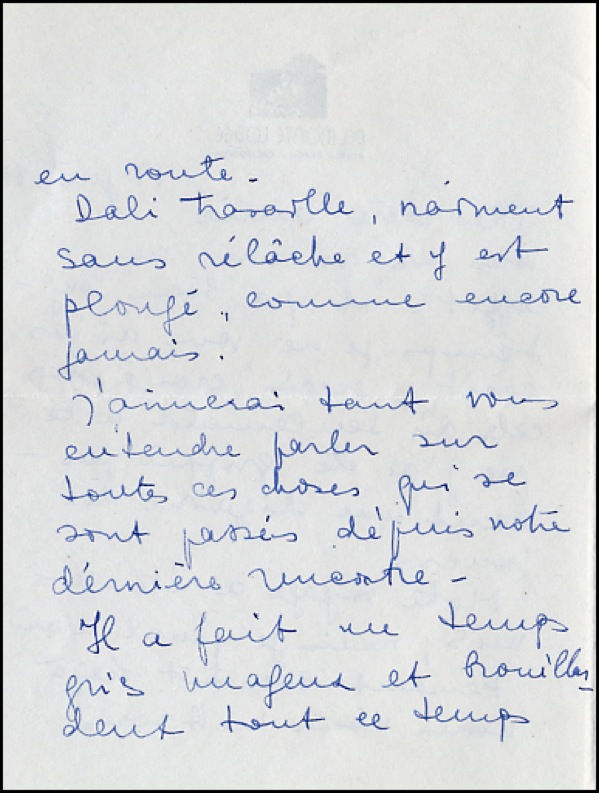 en route -
Dali travaille, vraiment
sans rélâche et y est
plongé, comme encore
jamais.
J'aimerai tant vous
entendre parler sur
toutes ces choses qui se
sont passés dépuis notre
dérnière rencontre -
Il a fait un temps
gris nuageux et brouillar-
deut tout ce temps
DEL MONTE LODGE